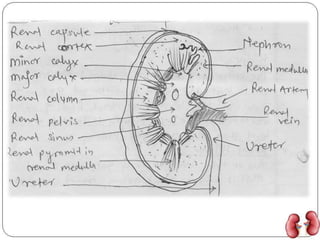 Renal capsule
Renal cortex
minor calyx
major calyx
Renal column
Renal pelvis
Renal sinus
Renal pyramid in
renal medulla
Ureter
Nephron
Renal medulla
Renal Artery
Renal
vein
Ureter